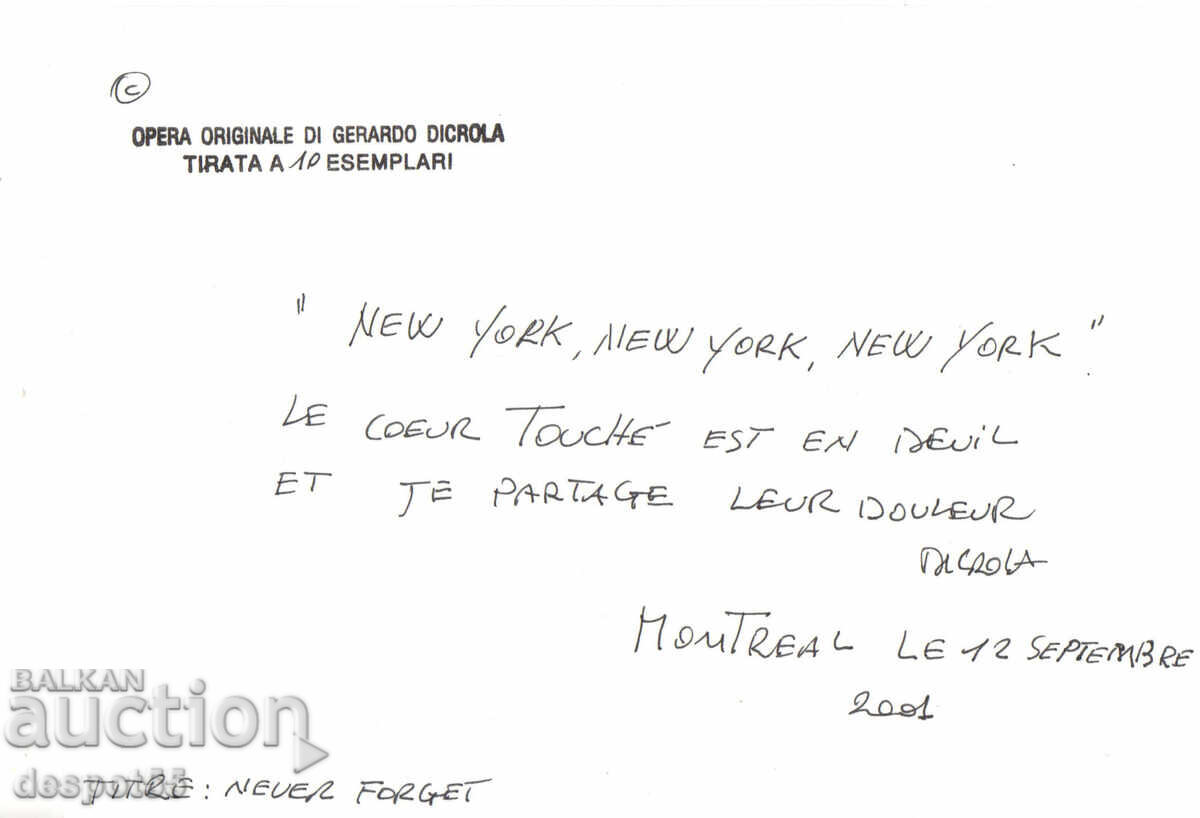 ©
OPERA ORIGINALE DI GERARDO DICROLA
TIRATA A 10 ESEMPLARI
" NEW YORK, NEW YORK, NEW YORK ".
LE COEUR TOUCHÉ EST EN DEUIL
ET JE PARTAGE LEUR DOULEUR
DICROLA
MONTREAL LE 12 SEPTEMBRE
2001
BALKAN
auction
despot55
TITRE: NEVER FORGET